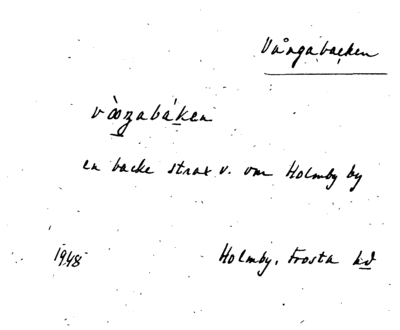 Vångabacken
en backe strax v. om Holmby by
1948
Holmby, Frosta hd